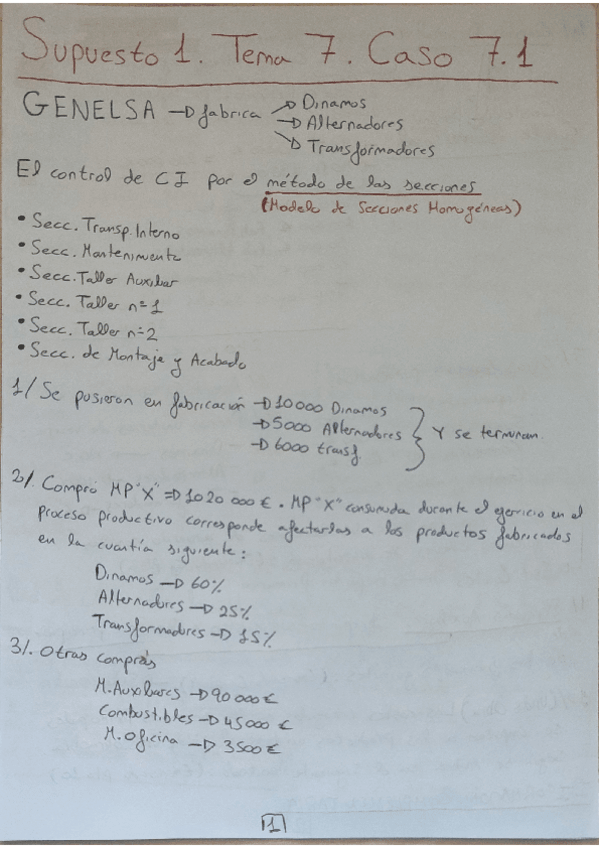 Supuesto 1. Tema 7. Caso 7.1
GENELSA → fabrica → Dinamos
→ Alternadores
→ Transformadores
El control de CI por el método de las secciones
(Modelo de Secciones Homogéneas)
• Secc. Transp. Interno
• Secc. Mantenimiento
• Secc. Taller Auxiliar
• Secc. Taller nº 1
• Secc. Taller nº 2
• Secc. de Montaje y Acabado
1/ Se pusieron en fabricación → 10000 Dinamos
→ 5000 Alternadores } Y se terminan.
→ 6000 transf.
2/. Compró MP "X" ⇒ 1020 000 €. MP "X" consumida durante el ejercicio en el
proceso productivo corresponde afectarlas a los productos fabricados
en la cuantía siguiente:
Dinamos → 60%
Alternadores → 25%
Transformadores → 15%
3/. Otras compras
M. Auxiliares → 90 000 €
Combustibles → 45000 €
M. Oficina → 3500 €
1